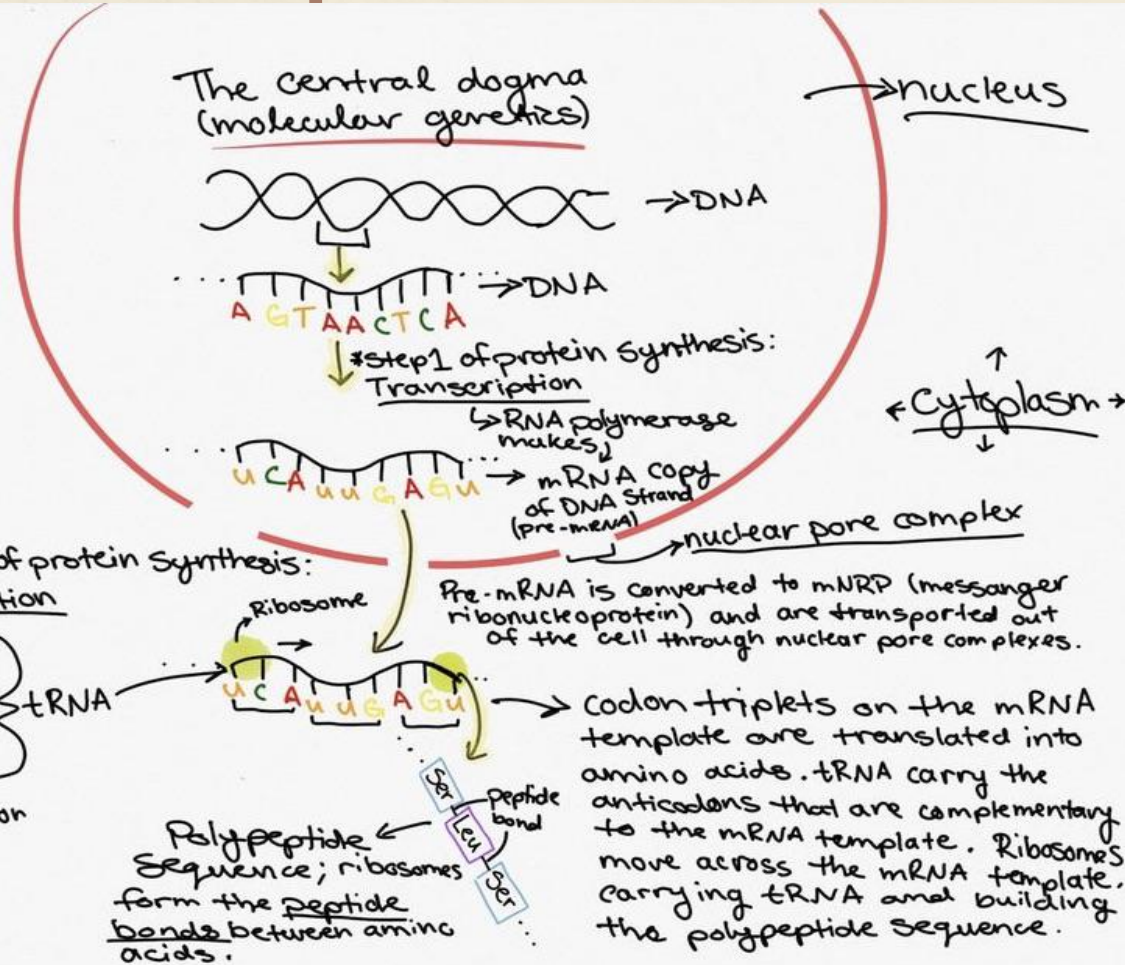 The central dogma
(molecular genetics)
→ nucleus
→ DNA
→ DNA
A G T A A C T C A
*Step 1 of protein synthesis:
Transcription
↳ RNA polymerase
makes
← Cytoplasm →
U C A U U G A G U
→ mRNA copy
of DNA Strand
(pre-mRNA)
→ nuclear pore complex
of protein synthesis:
tion
Pre-mRNA is converted to mNRP (messanger
ribonucleoprotein) and are transported out
of the cell through nuclear pore complexes.
Ribosome
tRNA
U C A U U G A G U
codon triplets on the mRNA
template are translated into
amino acids. tRNA carry the
anticodons that are complementary
to the mRNA template. Ribosomes
move across the mRNA template,
carrying tRNA and building
the polypeptide sequence.
on
Ser
Leu
Ser
peptide
bond
Polypeptide
Sequence; ribosomes
form the peptide
bonds between amino
acids.